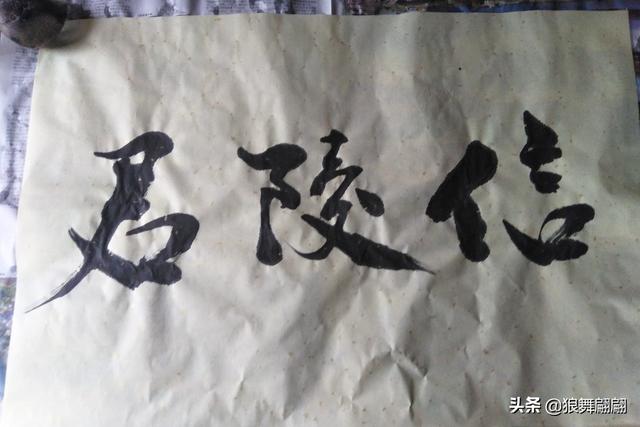 信陵君
头条 @狼舞翩翩